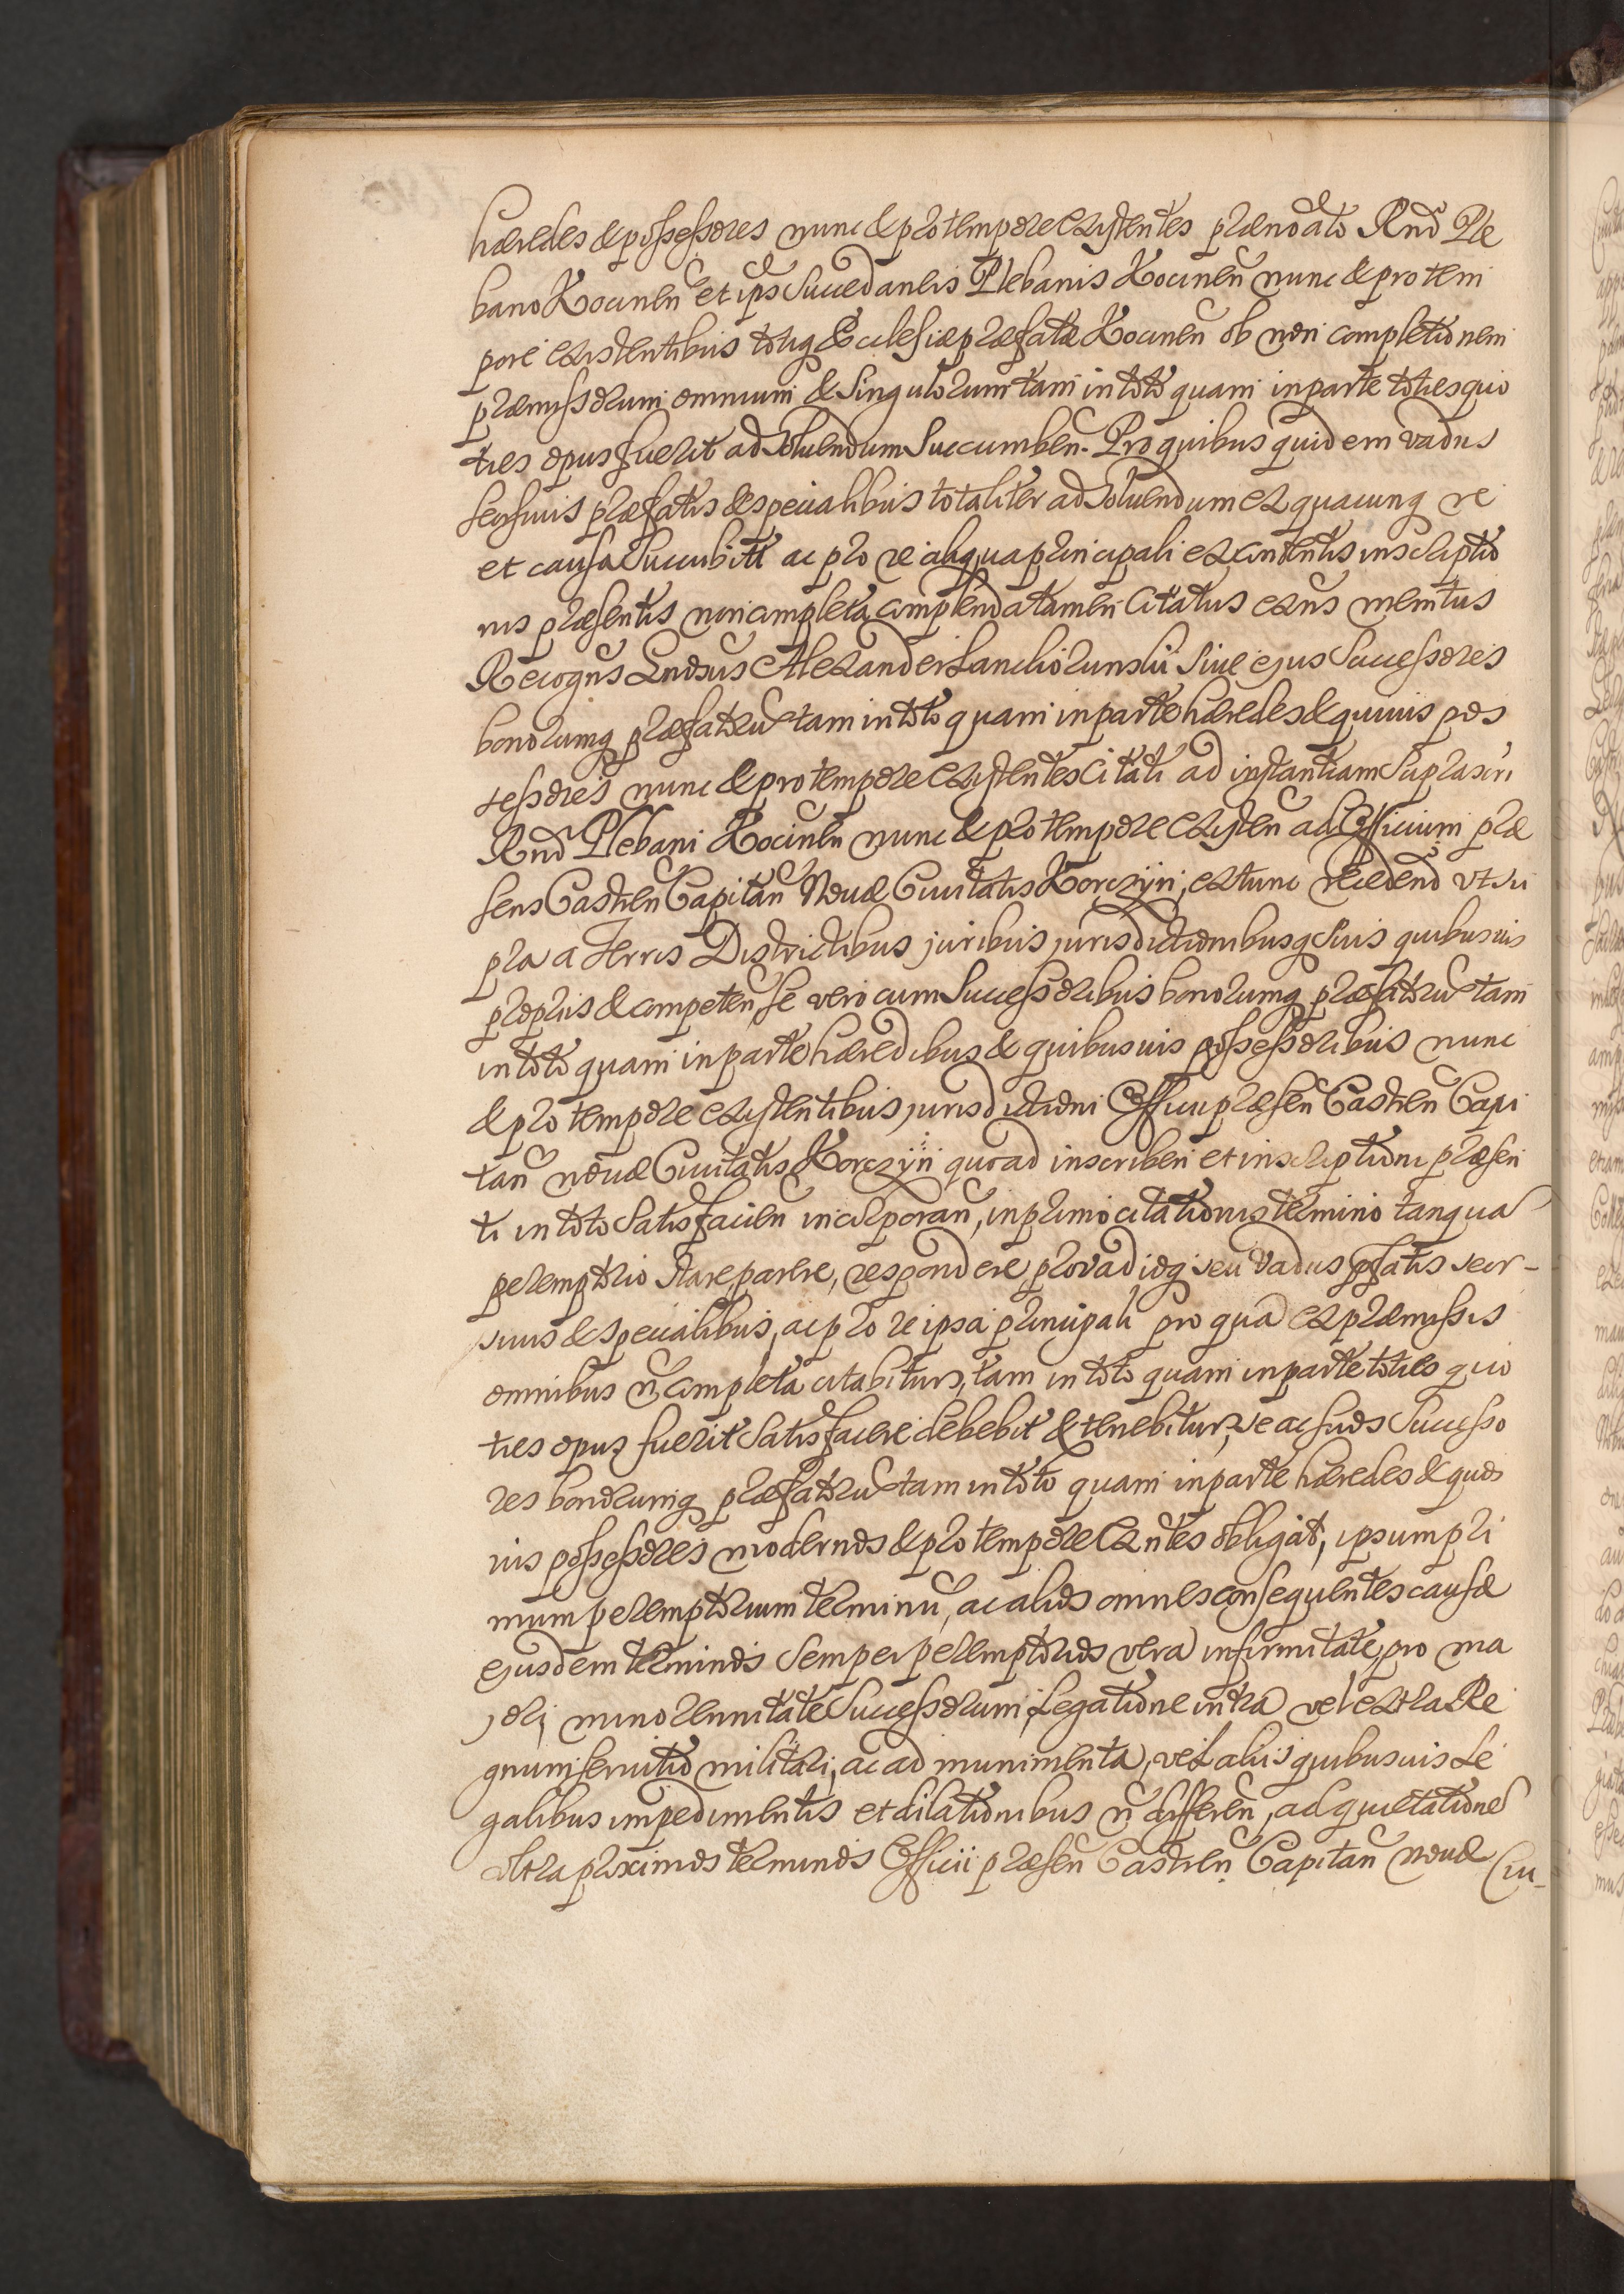 hæredes & possessores nunc & pro tempore existentes prænoato Rnd Ple
bano Kocinen et ips Succedaneis Plebanis Kocinen nunc & pro tem
pore existentibus totiq Ecclesiæ præfatæ Kocinen ob non completionem
præmissorum omnium & Singulorum tam in toto quam in parte toties quo
ties opus fuerit ad Soluendum Succumben. Pro quibus quidem vadys
seorsiuis præfatis & specialibus totaliter ad Soluendum ex quacunq re
et causa Sucubitt ac pro re aliqua principali ex contentis inscriptio
nis præsentis non completa, complenda tamen Citatus exns memtus
Recogns Gndsus Alexander Lanckorunskii Siue ejus Successores
bonorumq præfatoru tam in toto quam in parte hæredes & quiuis pos
sessores nunc & pro tempore existentes Citati ad instantiam Suprascri
Rnd Plebani Kocinen nunc & pro tempore existen ad Officium præ
sens Castren Capitan Nouæ Ciuitatis Korczyn, extunc recedend vt su
pra a Terris Districtibus juribus jurisdictionibusq Suis quibusuis
proprijs & competen, se vero cum Successoribus bonorumq præfatoru tam
in toto quam in parte hæredibus & quibusuis possessoribus nunc
& pro tempore existentibus jurisdictioni Officij præsen Castren Capi
tan nouæ Ciuitatis Korczyn quoad inscriben et inscriptioni præsen
ti in toto Satisfacien incorporan, in primo citationis termino tanqua
peremptorio stare, parere, respondere, pro vadioq seu vadys pfatis seor-
siuis & specialibus, ac pro re ipsa principali pro qua ex præmissis
omnibus n completa citabitur, tam in toto quam in parte toties quo
ties opus fuerit Satisfacere debebit & tenebitur, se ac suos Successo
res bonorumq præfatoru tam in toto quam in parte hæredes & quos
uis possessores modernos & pro tempore exntes obligat, ipsum pri
mum peremptorium terminu, ac alios omnes consequentes causæ
ejusdem terminos Semper peremptorios vera infirmitate, pro ma
jori, minorennitate Successorum, Legatione intra vel extra Re
gnum seruitio militari, ac ad munimenta, vel alijs quibusuis Le
galibus impedimentis et dilationibus n differen, ad quietatione
vltra proximos terminos Officii præsen Castren Capitan nouæ Ciu-